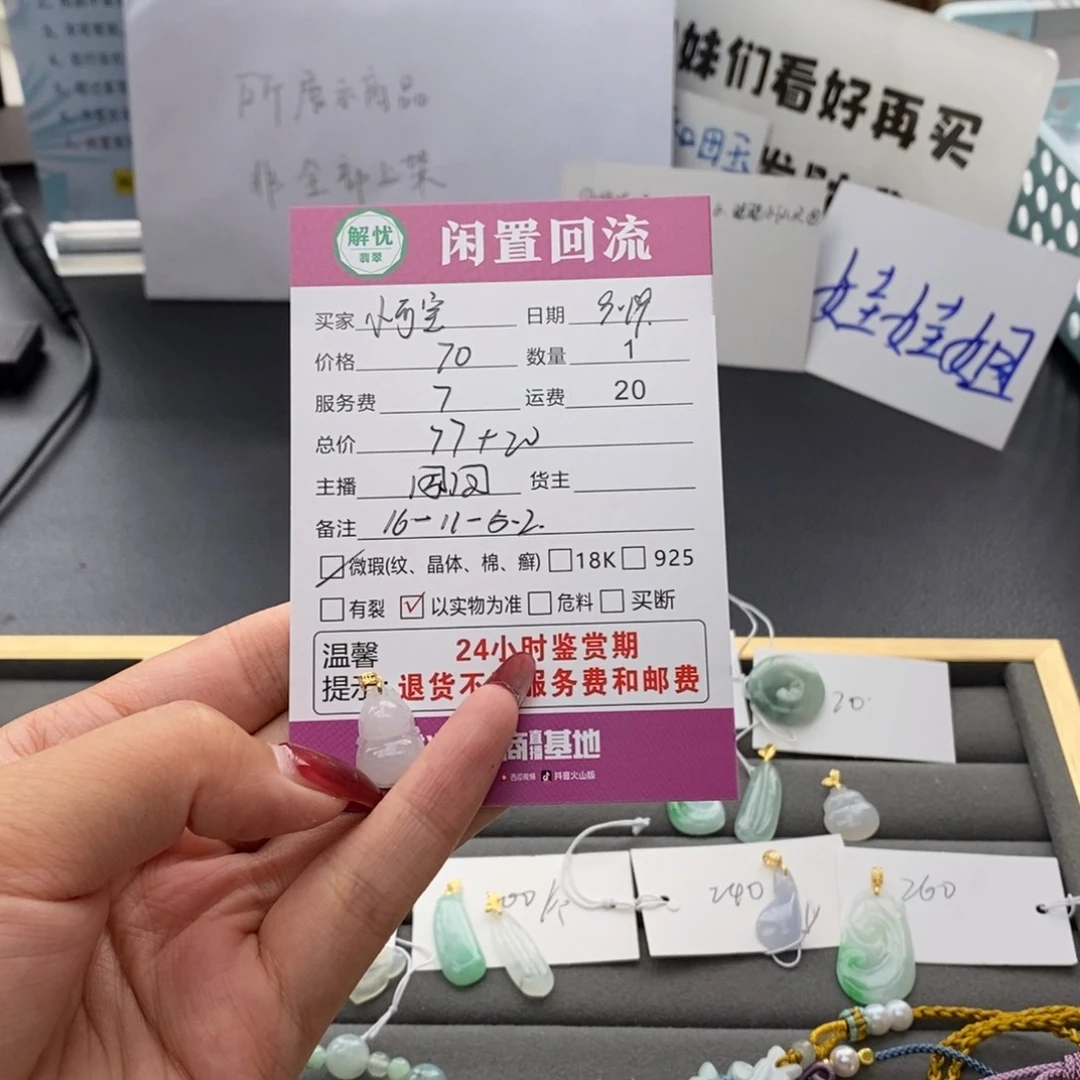 所展示商品
非全部上架
妹们看好再买
和田玉
娃娃姐
解忧
翡翠
闲置回流
买家 日期 9.19.
价格 70 数量 1
服务费 7 运费 20
总价 77+20
主播 货主
备注 16-11-5-2.
微瑕(纹、晶体、棉、癣) 18K 925
有裂 以实物为准 危料 买断
温馨 24小时鉴赏期
提示: 退货不 服务费和邮费
商直播基地
西瓜视频 抖音火山版
20.
00/个
240
260